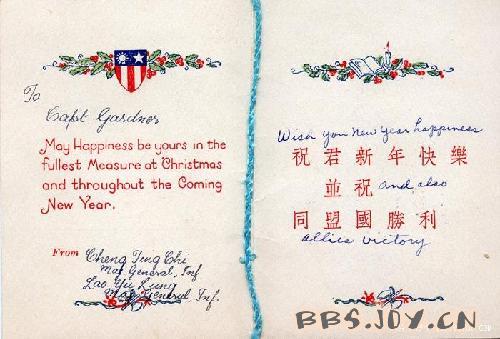 To
Capt Gardner
May Happiness be yours in the
fullest Measure at Christmas
and throughout the Coming
New Year.
From Cheng Teng Chi
Maj General, Inf
Lao Yu Kung
Maj General Inf.
Wish you new year happiness
祝君新年快樂
並祝 and also
同盟國勝利
allies victory
BBS.JDY.CN